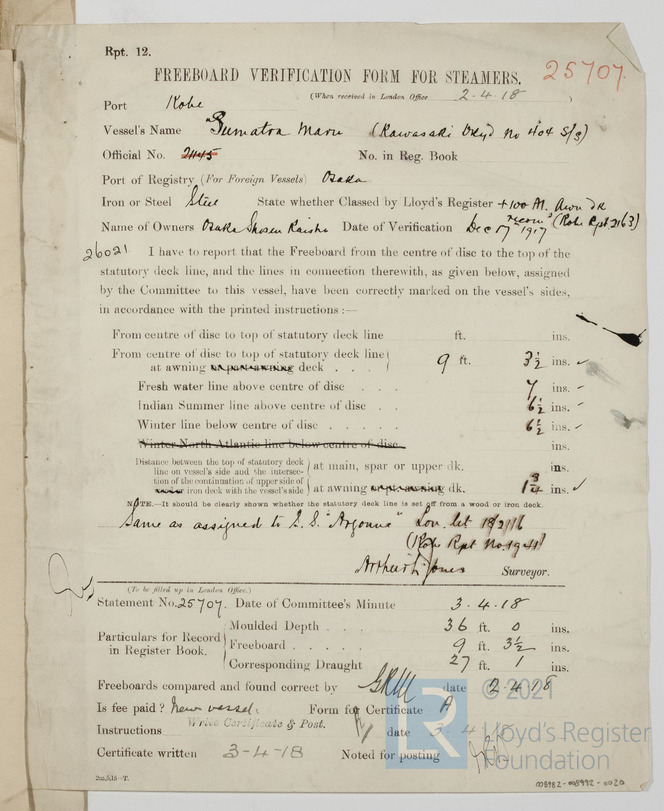 Rpt. 12.
25707.
FREEBOARD VERIFICATION FORM FOR STEAMERS.
(When received in London Office 2-4-18 )
Port Kobe
Vessel's Name "Sumatra Maru (Kawasaki Dkyd No 404 S/S)
Official No. 2145 No. in Reg. Book
Port of Registry (For Foreign Vessels) Osaka
Iron or Steel Steel State whether Classed by Lloyd's Register +100 A1. Awn dk
recom^d (Kobe Rpt 2163)
Name of Owners Osaka Shosen Kaisha Date of Verification Dec 17 1917
26021 I have to report that the Freeboard from the centre of disc to the top of the
statutory deck line, and the lines in connection therewith, as given below, assigned
by the Committee to this vessel, have been correctly marked on the vessel's sides,
in accordance with the printed instructions :—
From centre of disc to top of statutory deck line ft. ins.
From centre of disc to top of statutory deck line
at awning or part awning deck . . . 9 ft. 3½ ins. ✓
Fresh water line above centre of disc . . . 7 ins.
Indian Summer line above centre of disc . . 6½ ins.
Winter line below centre of disc . . . . . 6½ ins. ✓
Winter North Atlantic line below centre of disc ins.
Distance between the top of statutory deck
line on vessel's side and the intersec-
tion of the continuation of upper side of
iron deck with the vessel's side
at main, spar or upper dk. ins.
at awning or pt. awning dk. 1¾ ins. ✓
NOTE.—It should be clearly shown whether the statutory deck line is set off from a wood or iron deck.
Same as assigned to S.S. "Argonne" Lon. let 18/2/16
(Kobe Rpt No. 1941)
Arthur L. Jones Surveyor.
(To be filled up in London Office.)
Statement No. 25707. Date of Committee's Minute 3.4.18
Particulars for Record
in Register Book.
Moulded Depth . . . 36 ft. 0 ins.
Freeboard . . . . . 9 ft. 3½ ins.
Corresponding Draught 27 ft. 1 ins.
Freeboards compared and found correct by date 2-4-18
Is fee paid? New vessel. Form for Certificate A
Instructions Write Certificate & Post. date 3-4-18
Certificate written 3-4-18 Noted for posting
2m,5,15—T.
LR © 2021
Lloyd's Register
Foundation
008982-008992-0020